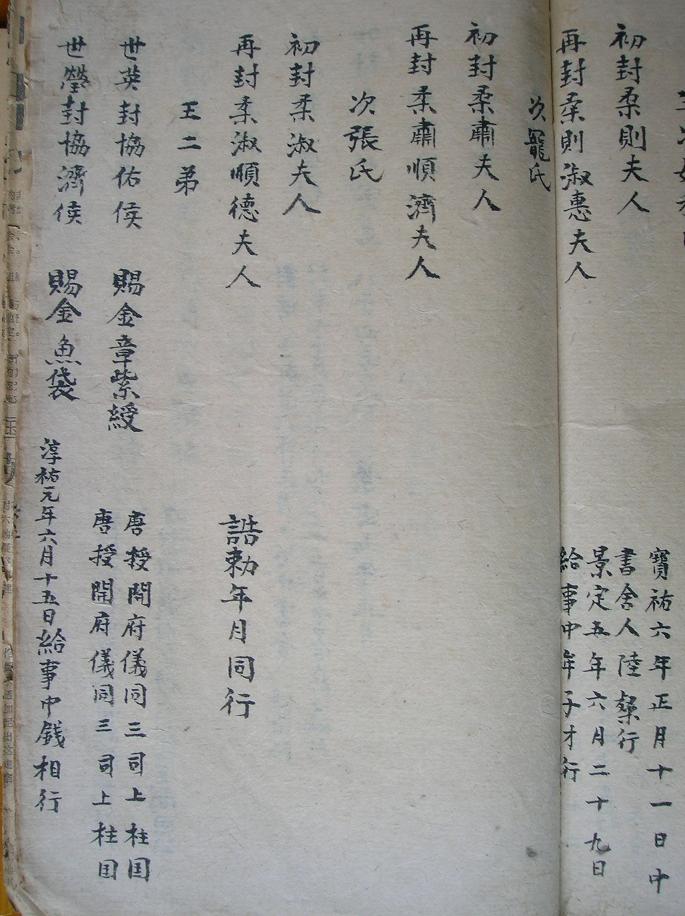 初封柔則夫人
寶祐六年正月十一日中
書舍人陸粲行
再封柔則淑惠夫人
景定五年六月二十九日
給事中牟子才行
次寵氏
初封柔肅夫人
再封柔肅順濟夫人
次張氏
初封柔淑夫人
再封柔淑順德夫人
誥勅年月同行
王二弟
世英封協佑侯 賜金章紫綬 唐授開府儀同三司上柱国
世瑩封協濟侯 賜金魚袋 唐授開府儀同三司上柱国
淳祐元年六月十五日給事中錢相行